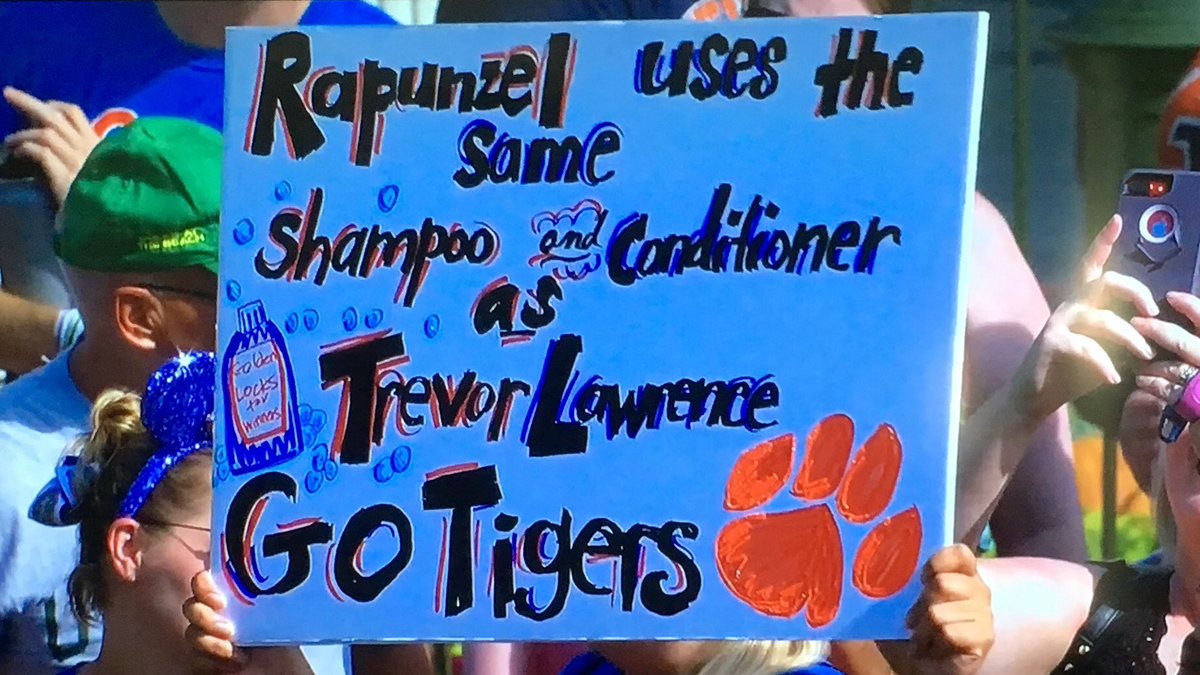 Rapunzel uses the
same
Shampoo and Conditioner
as
Trevor Lawrence
Golden
Locks
for
winners
Go Tigers
THE BEACH